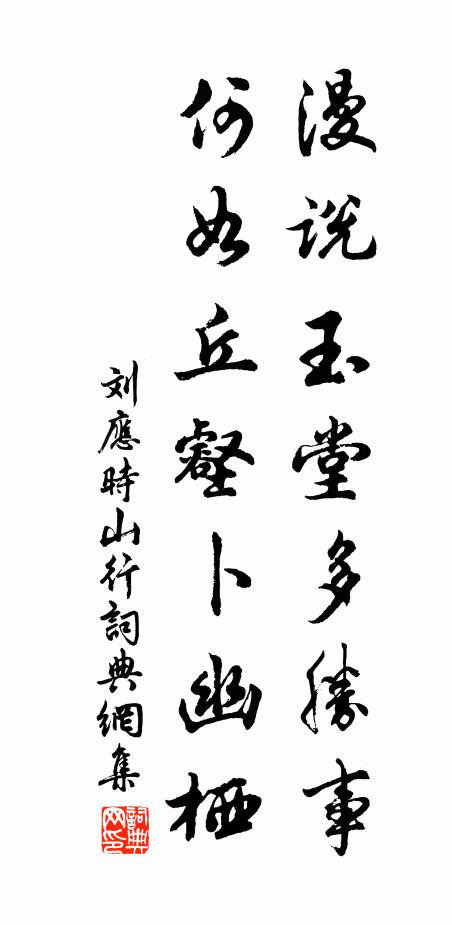 漫説玉堂多勝事
何如丘壑卜幽栖
刘應時山行詞典網集
詞典网印